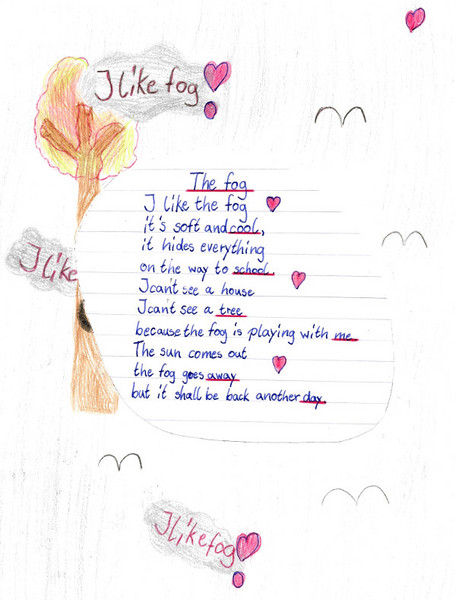 I like fog
The fog
I like the fog
it's soft and cool,
it hides everything
on the way to school.
I can't see a house
I can't see a tree
I like
because the fog is playing with me.
The sun comes out
the fog goes away
but it shall be back another day.
I like fog